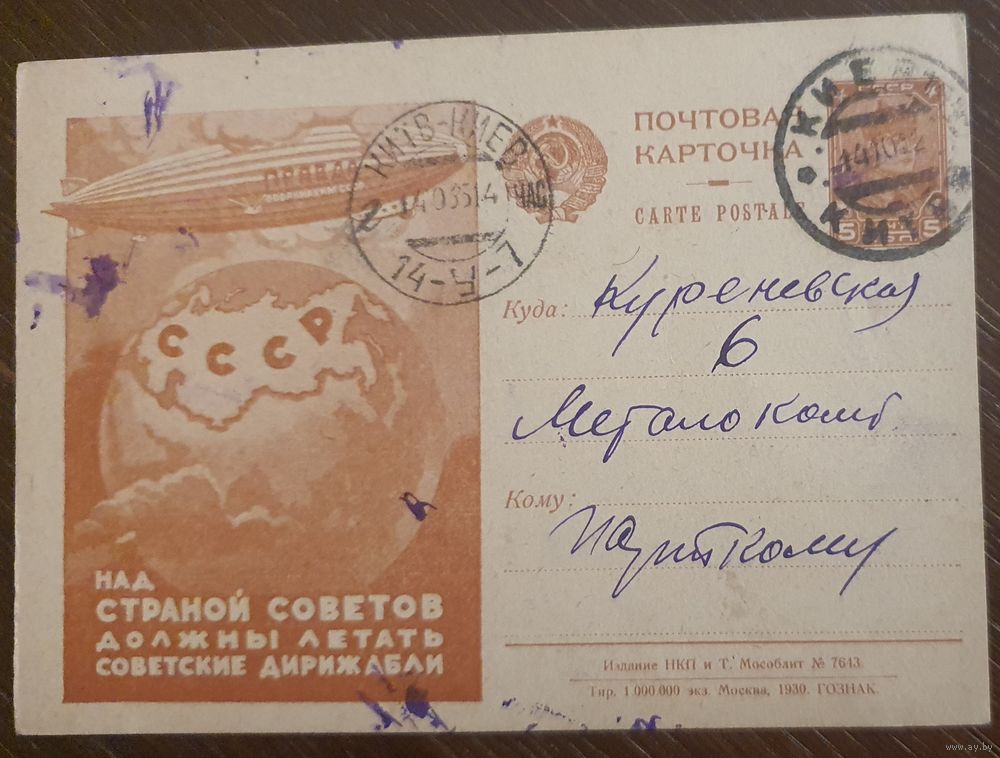 ПРАВДА
СССР
НАД
СТРАНОЙ СОВЕТОВ
ДОЛЖНЫ ЛЕТАТЬ
СОВЕТСКИЕ ДИРИЖАБЛИ
КИЇВ-КИЕВ
14-У-7
ПОЧТОВАЯ
КАРТОЧКА
CARTE POSTALE
КИЕВ
КИЇВ
5 5
Куда: Куреневская
6
Металокомб
Кому:
Парткому
Издание НКП и Т. Мособлит № 7643.
Тир. 1 000 000 экз. Москва, 1930. ГОЗНАК.
www.ay.by